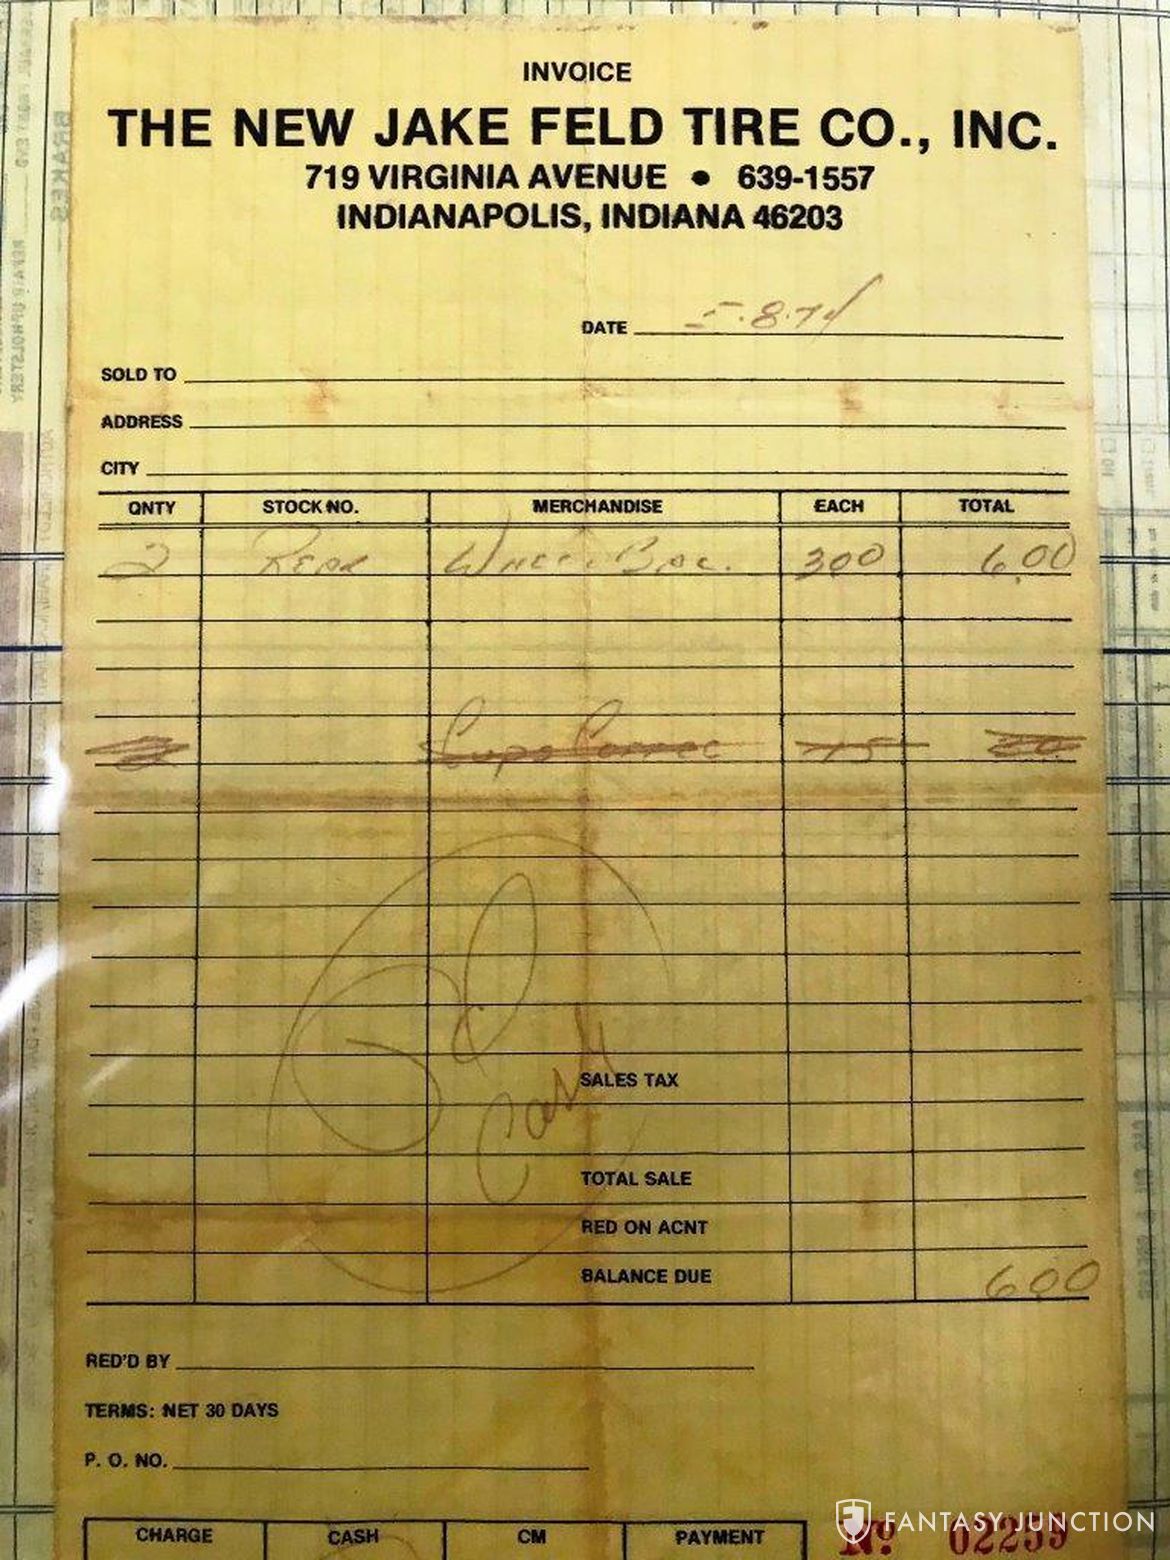 INVOICE
THE NEW JAKE FELD TIRE CO., INC.
719 VIRGINIA AVENUE • 639-1557
INDIANAPOLIS, INDIANA 46203
DATE 5.8.74
SOLD TO
ADDRESS
CITY
QNTY STOCK NO. MERCHANDISE EACH TOTAL
2 Rear Whee. Bal. 300 6.00
Pd
Cash
SALES TAX
TOTAL SALE
RED ON ACNT
BALANCE DUE 6.00
RED'D BY
TERMS: NET 30 DAYS
P. O. NO.
CHARGE CASH CM PAYMENT
No 02259
FANTASY JUNCTION